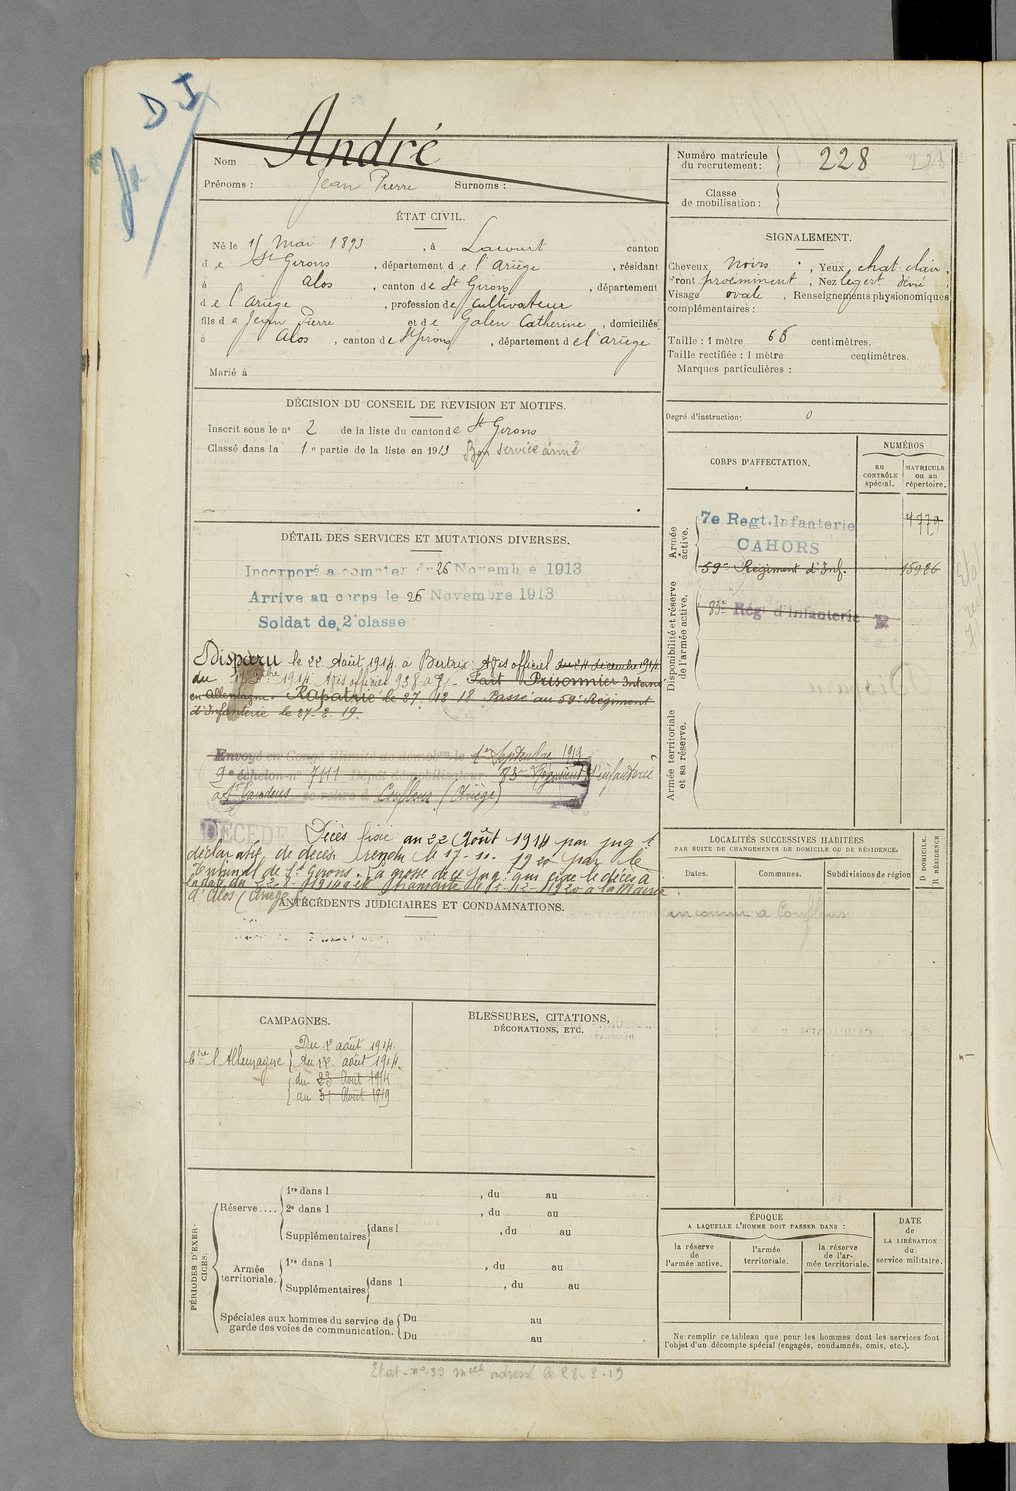 D J
André
Nom
Prénoms : Jean Pierre Surnoms :
Numéro matricule
du recrutement : 228 228
Classe
de mobilisation :
ÉTAT CIVIL.
Né le 15 Mai 1893, à Lacourt canton
de St Girons, département de l'Ariège, résidant
à Alos, canton de St Girons, département
de l'Ariège, profession de Cultivateur
fils de Jean Pierre et de Galen Catherine, domiciliés
à Alos, canton de St Girons, département de l'Ariège
Marié à
SIGNALEMENT.
Cheveux noirs, Yeux chat. clair,
Front proéminent, Nez légert dévié
Visage ovale, Renseignements physionomiques
complémentaires :
Taille : 1 mètre 66 centimètres.
Taille rectifiée : 1 mètre centimètres.
Marques particulières :
Degré d'instruction: 0
DÉCISION DU CONSEIL DE REVISION ET MOTIFS.
Inscrit sous le no 2 de la liste du canton de St Girons
Classé dans la 1e partie de la liste en 1913 Bon service armé
CORPS D'AFFECTATION.
NUMÉROS
au
CONTRÔLE
spécial.
MATRICULE
ou au
répertoire.
Armée
active.
7e Regt. Infanterie 4779
CAHORS
59e Régiment d'Inf. 15926
Disponibilité et réserve
de l'armée active.
83e Rég d'Infanterie R
Armée territoriale
et sa réserve.
DÉTAIL DES SERVICES ET MUTATIONS DIVERSES.
Incorporé a compter du 26 Novembre 1913
Arrive au corps le 26 Novembre 1913
Soldat de 2e classe
Disparu le 22 Août 1914 à Bertrix. Avis officiel du 24 décembre 1914.
du 1914 Avis officiel 938 a 9. Fait Prisonnier Interné
en Allemagne. Rapatrié le 27. 12 18. Passé au 59e Régiment
d'Infanterie le 27. 2. 19.
Envoyé en Congé illimité de démobon le 1er Septembre 1919
9e échelon no 7111 Dépôt démobilisateur 83e Régiment d'infanterie
à St Gaudens se retire à Couflens (Ariège)
DÉCÉDÉ Décès fixé au 22 Août 1914 par jugt
déclaratif de décès rendu le 17-11. 1920 par le
Tribunal de St Girons. La grosse de ce jugt qui fixe le décès à
la date du 22-8-1914 a été transcrite le 15-12-1920 à la Mairie
d'Alos (Ariège)
ANTÉCÉDENTS JUDICIAIRES ET CONDAMNATIONS.
LOCALITÉS SUCCESSIVES HABITÉES
PAR SUITE DE CHANGEMENTS DE DOMICILE OU DE RÉSIDENCE.
Dates.
Communes.
Subdivisions de région
D DOMICILE.
R RÉSIDENCE
inconnu a Couflens
CAMPAGNES.
Ctre l'Allemagne
Du 2 août 1914.
au 22 août 1914.
du 23 Août 1914
au 31 Août 1919
BLESSURES, CITATIONS,
DÉCORATIONS, ETC.
PÉRIODES D'EXERCICES.
Réserve....
1re dans l , du au
2e dans l , du au
Supplémentaires dans l , du au
Armée
territoriale.
1re dans l , du au
Supplémentaires dans l , du au
Spéciales aux hommes du service de
garde des voies de communication.
Du au
Du au
ÉPOQUE
A LAQUELLE L'HOMME DOIT PASSER DANS :
la réserve
de
l'armée active.
l'armée
territoriale.
la réserve
de l'armée territoriale.
DATE
de
LA LIBÉRATION
du
service militaire.
Ne remplir ce tableau que pour les hommes dont les services font
l'objet d'un décompte spécial (engagés, condamnés, omis, etc.).
Etat-no 39 mcle adressé le 28-3-19